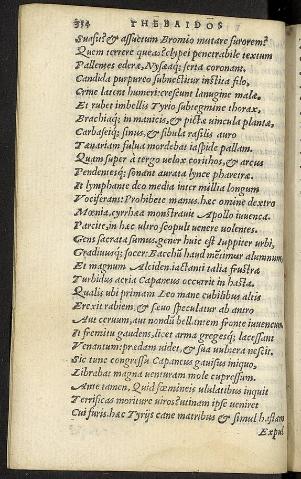 334 THEBAIDOS
Suasus? & assuetum Bromio mutare furorem?
Quem terrere queas? clypei penetrabile textum
Pallentes ederæ, Nysæaq; serta coronant.
Candida purpureo subnectitur instita filo,
Crine latent humeri: crescunt lanugine malæ.
Et rubet imbellis Tyrio subtegmine thorax,
Brachiaq; in manicis, & pictæ vincula plantæ,
Carbaseiq; sinus, & fibula rasilis auro
Tænariam fulua mordebat iaspide pallam.
Quam super à tergo uelox corithos, & arcus
Pendentesq; sonant aurata lynce pharetræ.
It lymphante deo media inter millia longum
Vociferans: Prohibete manus: hæc omine dextro
Mœnia, cyrrhæa monstrauit Apollo iuuenca.
Parcite, in hæc ultro scopuli uenere uolentes.
Gens sacrata sumus. gener huic est Iuppiter urbi,
Gradiuusq; socer: Bacchū haud mētimur alumnum,
Et magnum Alciden. iactanti talia frustra
Turbidus aeria Capaneus occurrit in hasta.
Qualis ubi primam Leo mane cubilibus altis
Erexit rabiem, & sæuo speculatur ab antro
Aut ceruum, aut nondū bellantem fronte iuuencum
It fremitu gaudens, licet arma gregesq; lacessant
Venantum: prædam uidet, & sua vulnera nescit.
Sic tunc congressu Capaneus gauisus iniquo,
Librabat magna venturam mole cupressum.
Ante tamen, Quid fœmineis ululatibus inquit
Terrificas moriture viros? utinam ipse veniret
Cui furis. hæc Tyrijs cane matribus & simul hastam
Expul